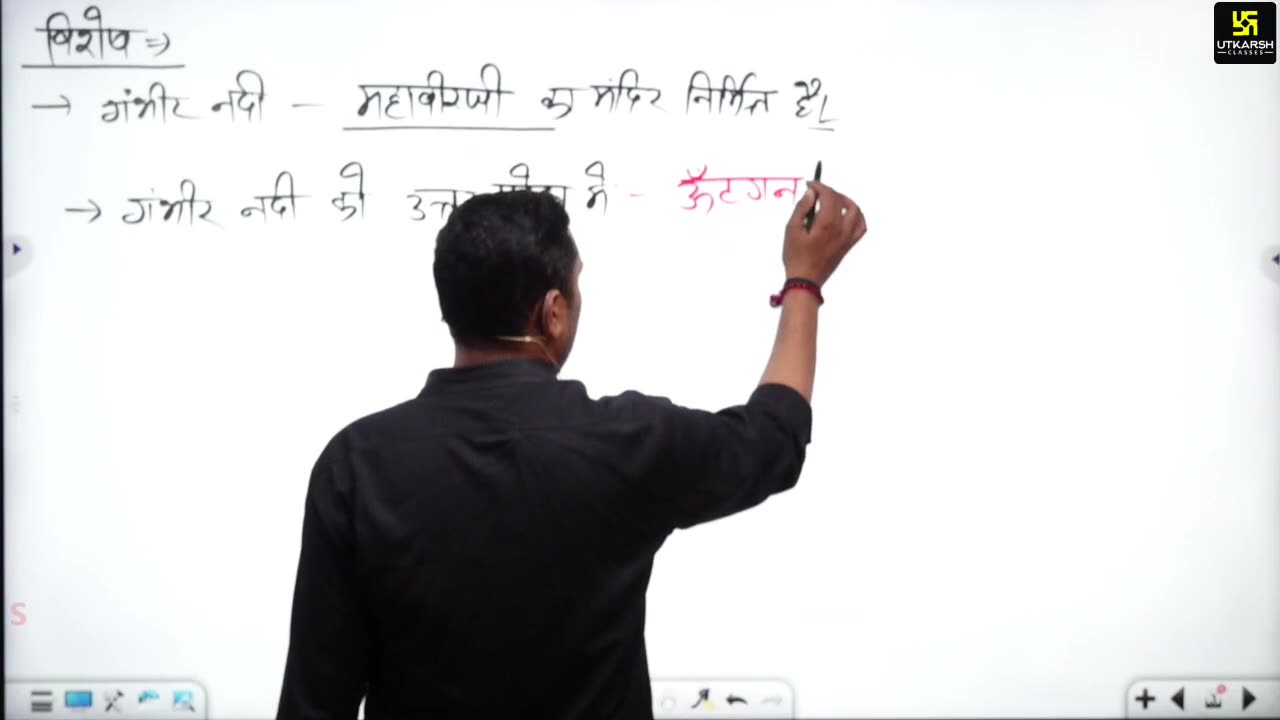 विशेष ⇒
UTKARSH
CLASSES
→ गंभीर नदी – महावीरजी का मंदिर निर्मित है।
→ गंभीर नदी को उत्तर में - ऊँटगन
S